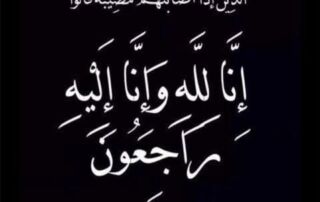 الذين إذا أصابتهم مصيبة قالوا
إِنَّا لِلَّهِ وَإِنَّا إِلَيْهِ
رَاجِعُونَ